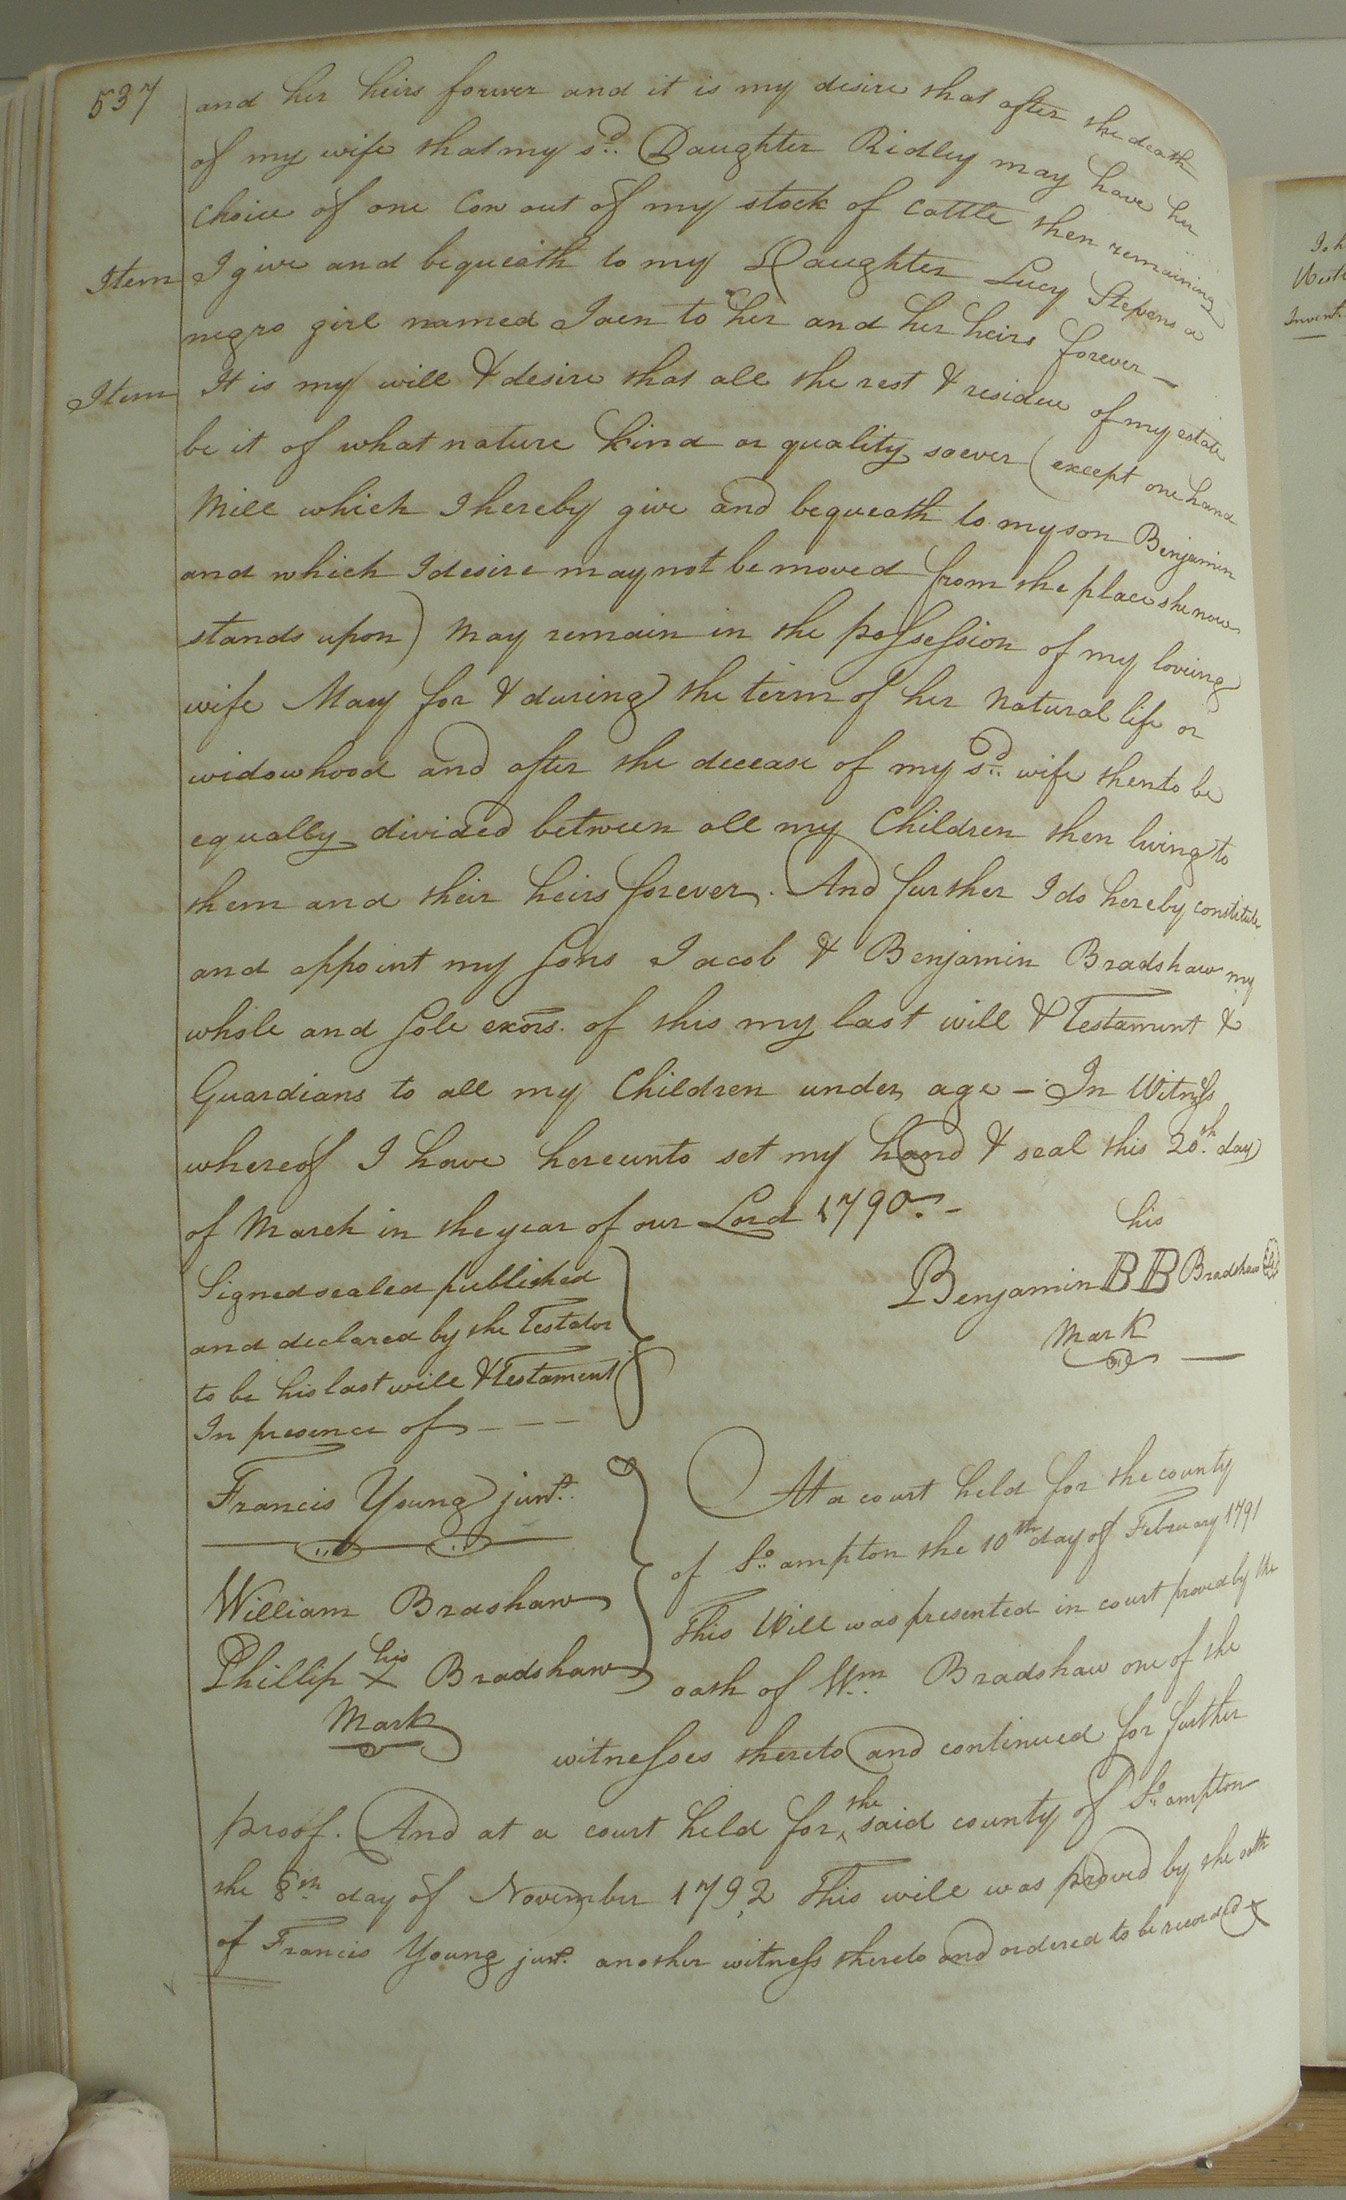 537
and her heirs forever and it is my desire that after the death
of my wife that my sd. Daughter Ridley may have her
choice of one Cow out of my stock of cattle then remaining
Item I give and bequeath to my Daughter Lucy Stepens a
negro girl named Jaen to her and her heirs forever —
Item It is my will & desire that all the rest & residue of my estate
be it of what nature kind or quality soever (except one hand
Mill which I hereby give and bequeath to my son Benjamin
and which I desire may not be moved from the place she now
stands upon) may remain in the possession of my loveing
wife Mary for & during the term of her natural life or
widowhood and after the decease of my sd. wife then to be
equally divided between all my Children then living to
them and their heirs forever. And further I do hereby constitute
and appoint my sons Jacob & Benjamin Bradshaw my
whole and sole exors. of this my last will & Testament &
Guardians to all my Children under age — In Witness
whereof I have hereunto set my hand & seal this 20th. day
of March in the year of our Lord 1790. —
his
Benjamin BB Bradshaw
Mark
Signed sealed published
and declared by the Testator
to be his last will & Testament
In presence of — — —
Francis Young junr.
William Bradshaw
his
Phillip X Bradshaw
Mark
At a court held for the county
of So. ampton the 10th day of February 1791
This Will was presented in court proved by the
oath of Wm. Bradshaw one of the
witnesses thereto and continued for further
proof. And at a court held for ^the said county of So. ampton
the 8th. day of November 1792 This will was proved by the oath
of Francis Young junr. another witness thereto and ordered to be recorded